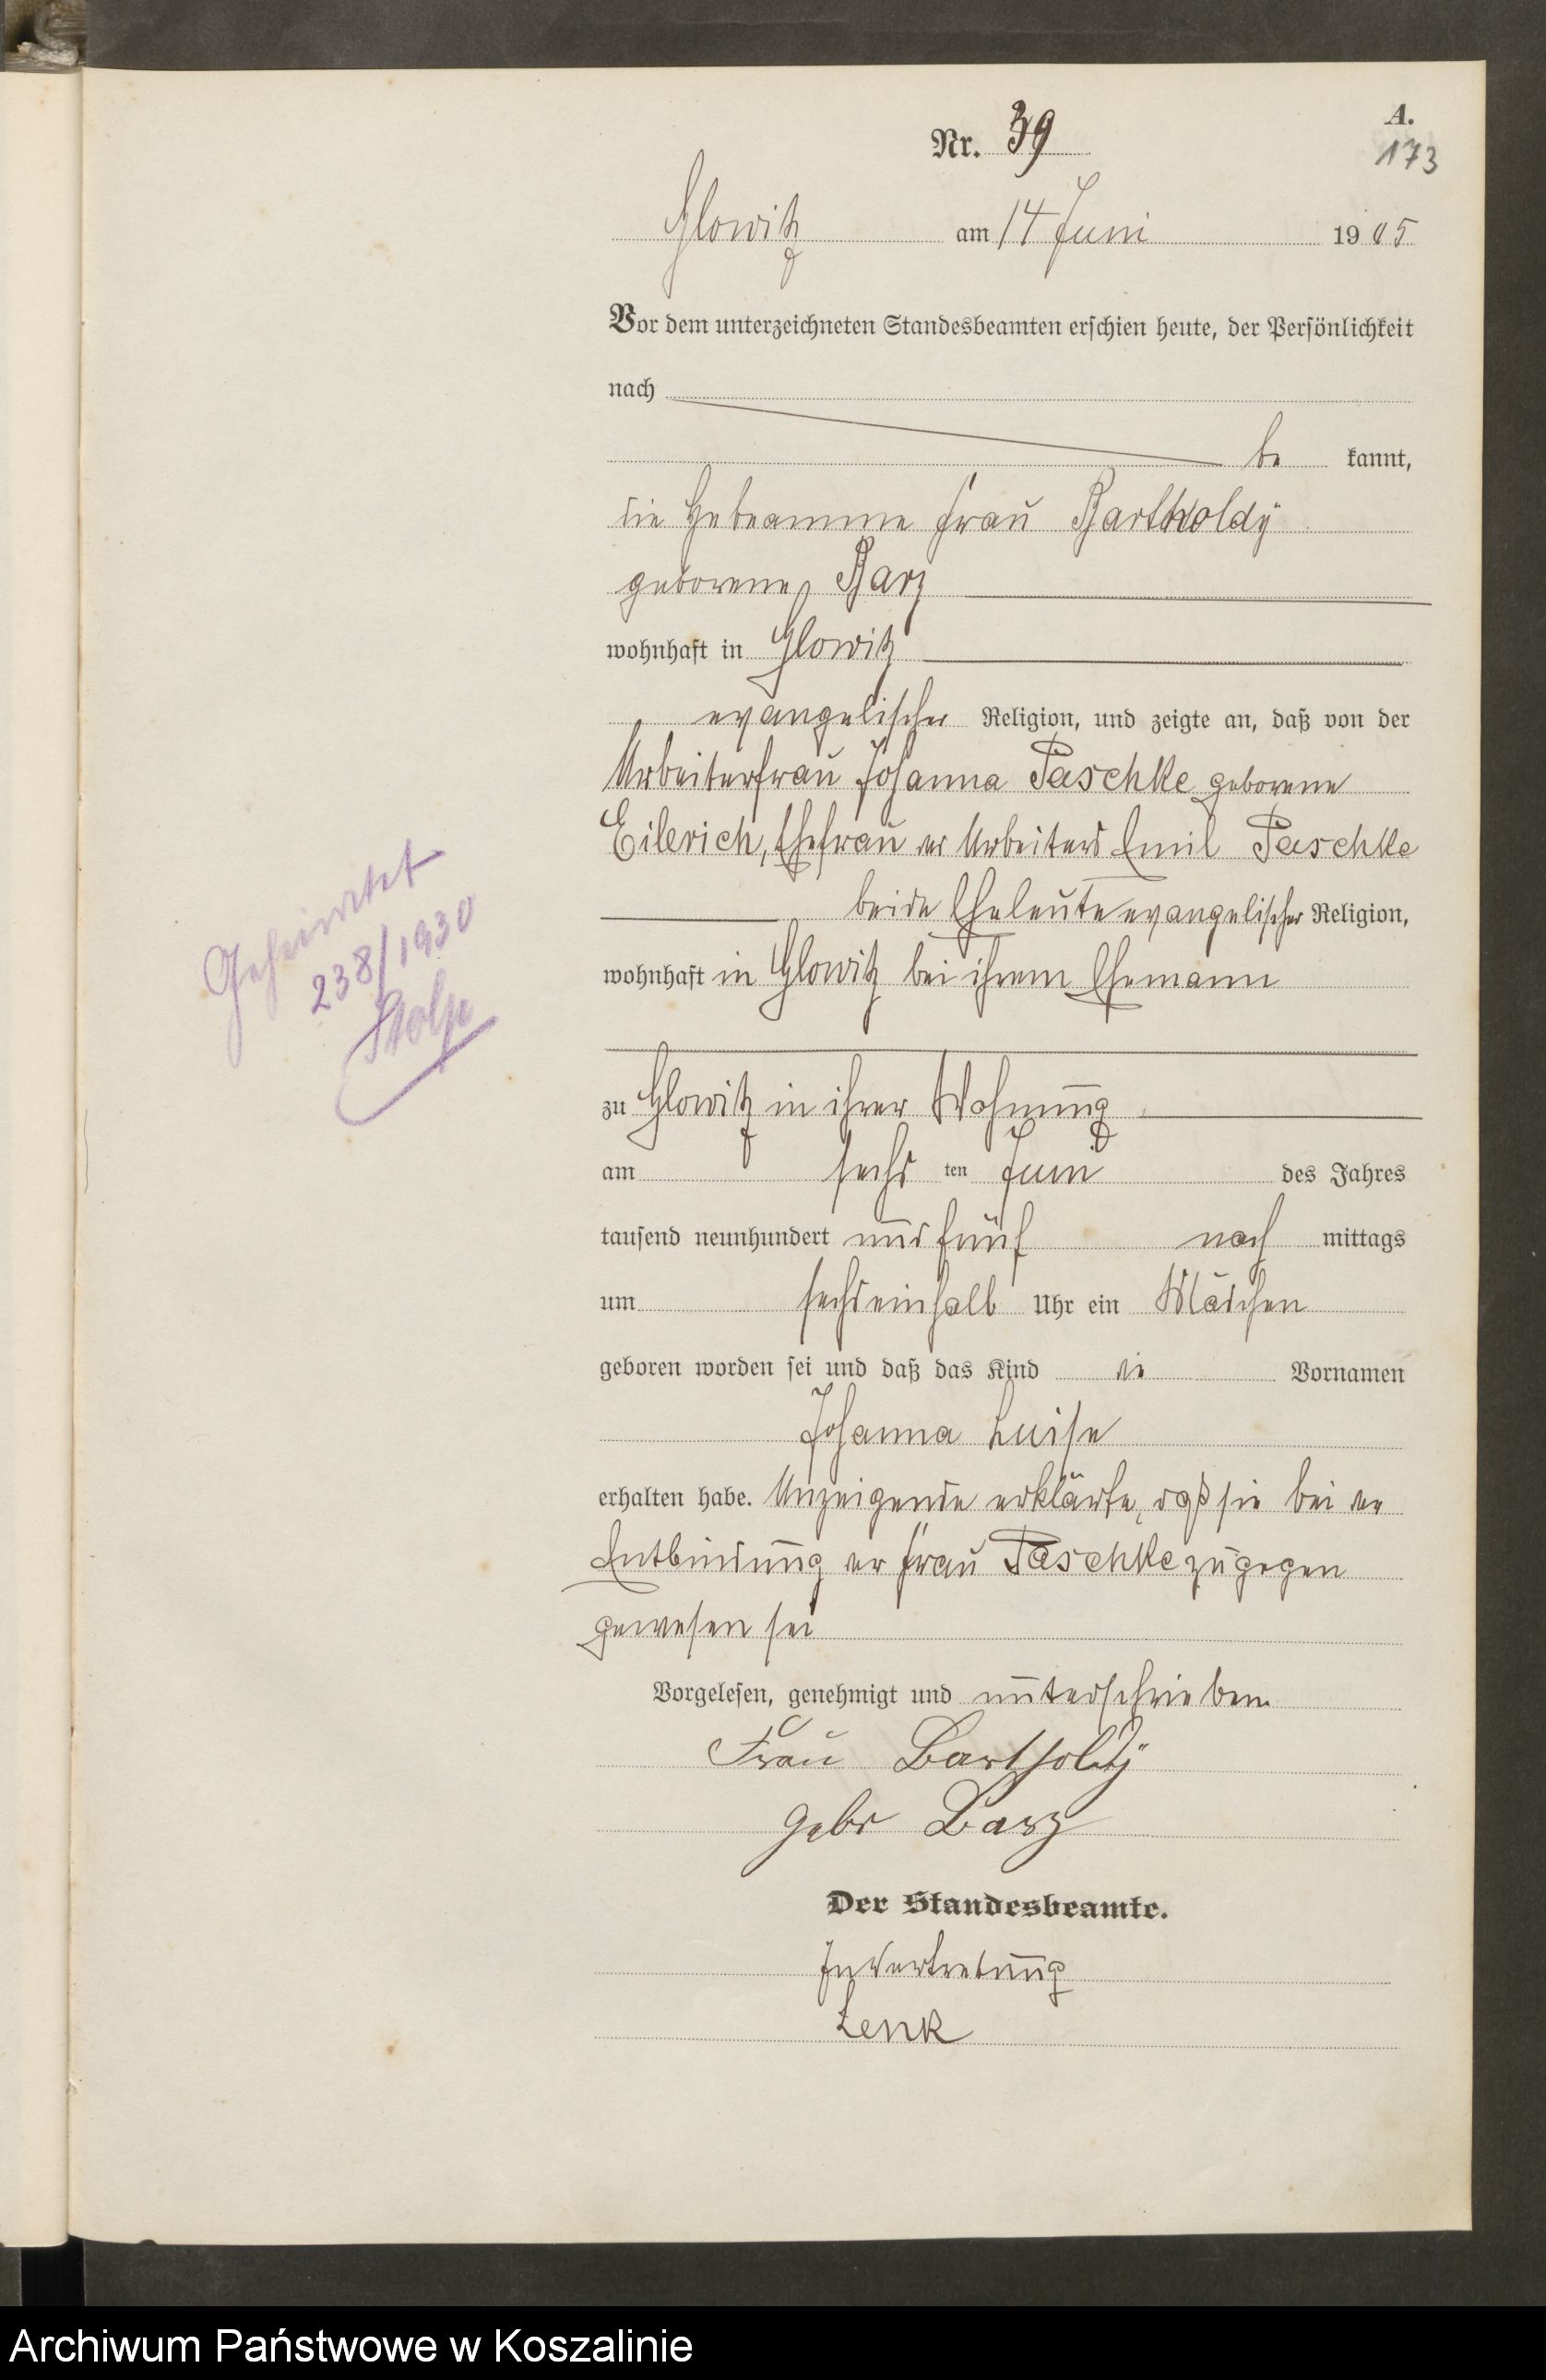 A.
Nr. 39
173
Glowitz am 14 Juni 1905
Vor dem unterzeichneten Standesbeamten erschien heute, der Persönlichkeit
nach
be kannt,
die Hebeamme Frau Bartholdy
geborene Barz
wohnhaft in Glowitz
evangelischer Religion, und zeigte an, daß von der
Arbeiterfrau Johanna Paschke geborene
Eilerich, Ehefrau des Arbeiters Emil Paschke
beide Eheleute evangelischer Religion,
wohnhaft in Glowitz bei ihrem Ehemann
zu Glowitz in ihrer Wohnung
am sechs ten Juni des Jahres
tausend neunhundert und fünf nach mittags
um sechseinhalb Uhr ein Mädchen
geboren worden sei und daß das Kind die Vornamen
Johanna Luise
erhalten habe. Anzeigende erklärte, daß sie bei der
Entbindung der Frau Paschke zugegen
gewesen sei
Vorgelesen, genehmigt und unterschrieben
Frau Bartholdy
gebr Barz
Der Standesbeamte.
In Vertretung
Lenk
Geheiratet
238/1930
Stolp
Archiwum Państwowe w Koszalinie